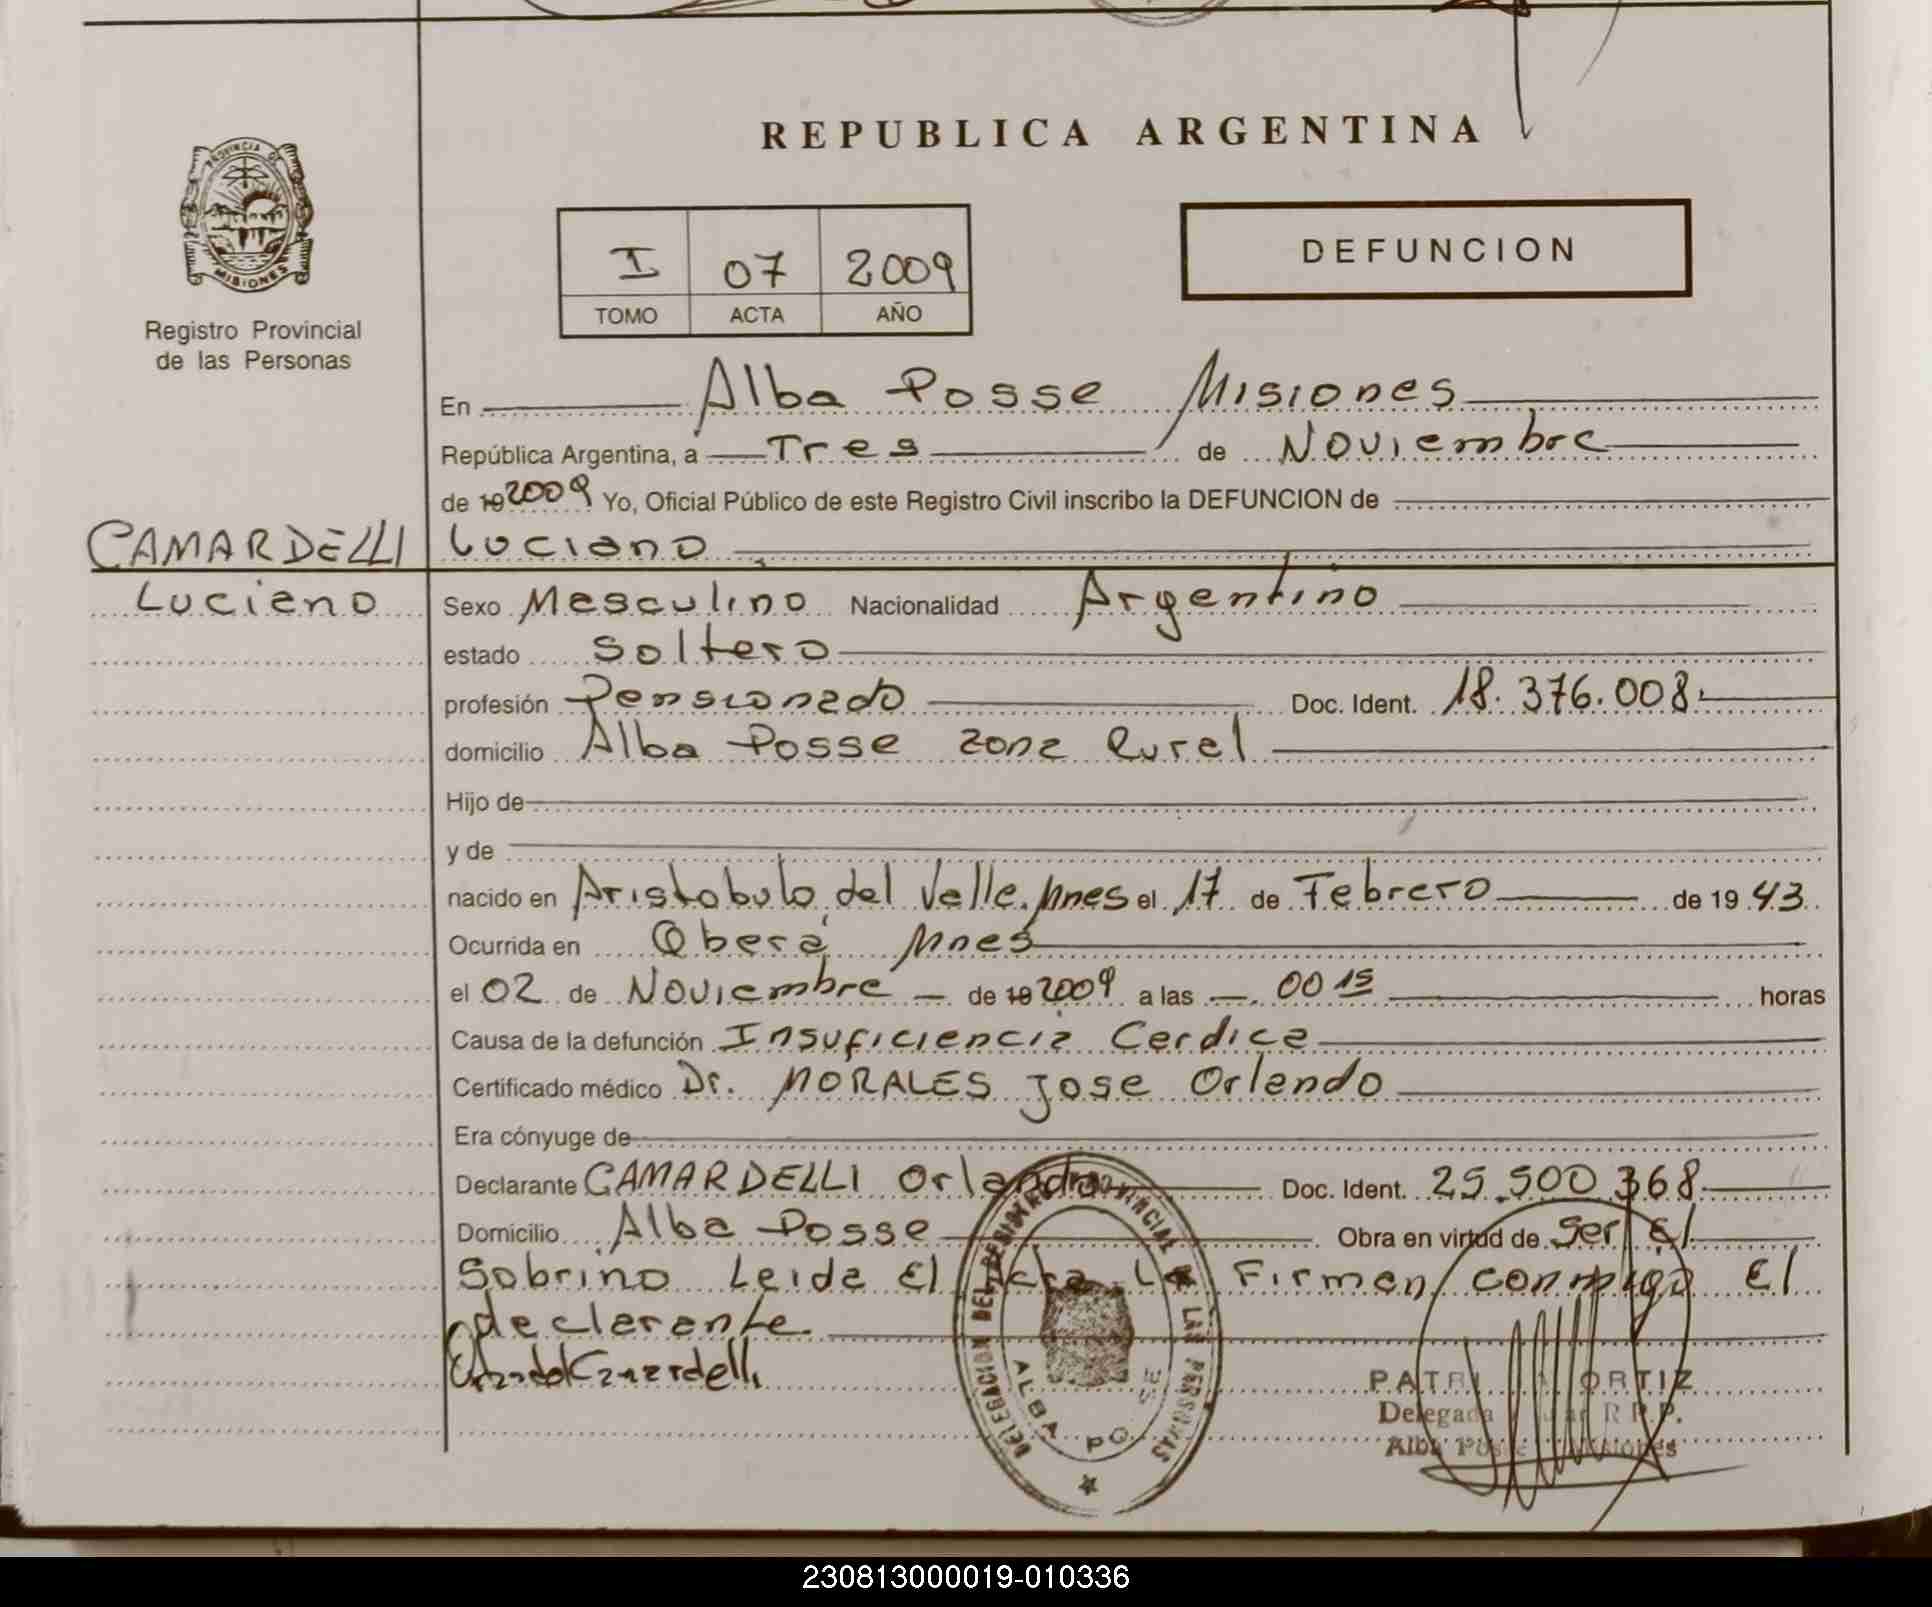 PROVINCIA DE
MISIONES
Registro Provincial
de las Personas
REPUBLICA ARGENTINA
I 07 2009
TOMO ACTA AÑO
DEFUNCION
En Alba Posse Misiones
República Argentina, a Tres de Noviembre
de 19 2009 Yo, Oficial Público de este Registro Civil inscribo la DEFUNCION de
CAMARDELLI Luciano
Luciano Sexo Masculino Nacionalidad Argentino
estado Soltero
profesión Pensionado Doc. Ident. 18.376.008
domicilio Alba Posse zona Rural
Hijo de
y de
nacido en Aristobulo del Valle. Mnes el 17 de Febrero de 19 43
Ocurrida en Oberá Mnes
el 02 de Noviembre de 19 2009 a las 00 15 horas
Causa de la defunción Insuficiencia Cardica
Certificado médico Dr. MORALES Jose Orlando
Era cónyuge de
Declarante CAMARDELLI Orlando Doc. Ident. 25.500 368
Domicilio Alba Posse Obra en virtud de Ser El
Sobrino Leida El Acta La Firman conmigo El
declarante
Orlando Camardelli
DELEGACION DEL REGISTRO PROVINCIAL DE LAS PERSONAS
ALBA POSSE
ORTIZ
Delegada R.P.P.
Alba Posse Misiones
230813000019-010336